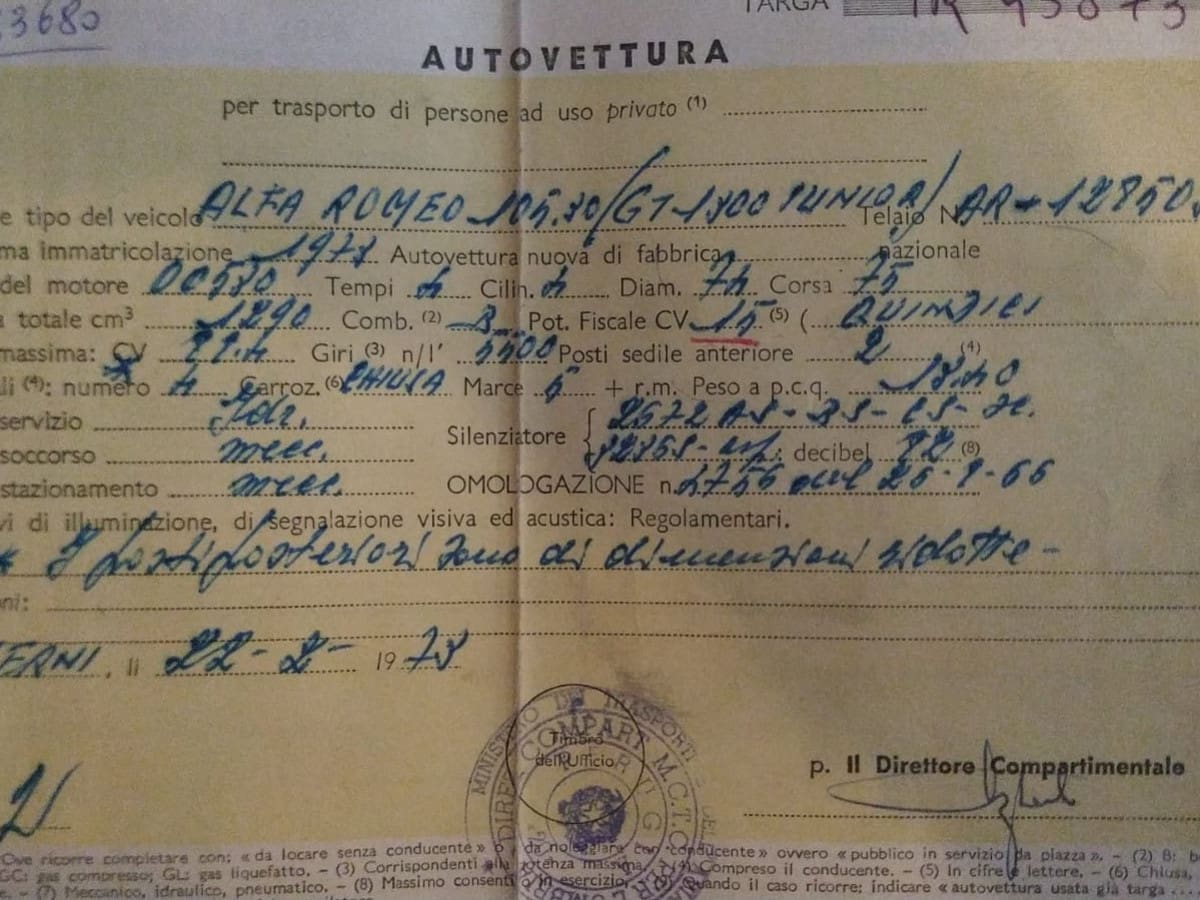 3680
TARGA TR 95873
AUTOVETTURA
per trasporto di persone ad uso privato (1)
e tipo del veicolo ALFA ROMEO 105.30/GT 1300 JUNIOR/ Telaio N. AR 12850
ma immatricolazione 1973 Autovettura nuova di fabbrica nazionale
del motore 00530 Tempi 4 Cilin. 4 Diam. 74 Corsa 75
totale cm³ 1290 Comb. (2) B Pot. Fiscale CV 15 (5) ( QUINDICI
massima: CV Giri (3) n/1' 5500 Posti sedile anteriore 2 (4)
li (4): numero 4 Carroz. (6) CHIUSA Marce 5 + r.m. Peso a p.c.q. 13.40
servizio Idr.
Silenziatore { 2672 AS - BS - CS -
soccorso mecc. decibel 82 (8)
stazionamento mecc. OMOLOGAZIONE n. 4756 del 26-1-66
vi di illuminazione, di segnalazione visiva ed acustica: Regolamentari.
* I posti posteriori sono di dimensioni ridotte -
ni:
ERNI, li 22-2- 1973
MINISTERO DEI TRASPORTI
COMPART. M.C.T.C.
Timbro
dell'Ufficio
p. Il Direttore Compartimentale
Ove ricorre completare con: « da locare senza conducente » o da noleggiare con conducente » ovvero « pubblico in servizio da piazza ». – (2) B: b
GC: gas compresso; GL: gas liquefatto. – (3) Corrispondenti alla potenza massima. (4) Compreso il conducente. – (5) In cifre e lettere. – (6) Chiusa,
e. – (7) Meccanico, idraulico, pneumatico. – (8) Massimo consentito in esercizio. (9) Quando il caso ricorre: indicare « autovettura usata già targa ....